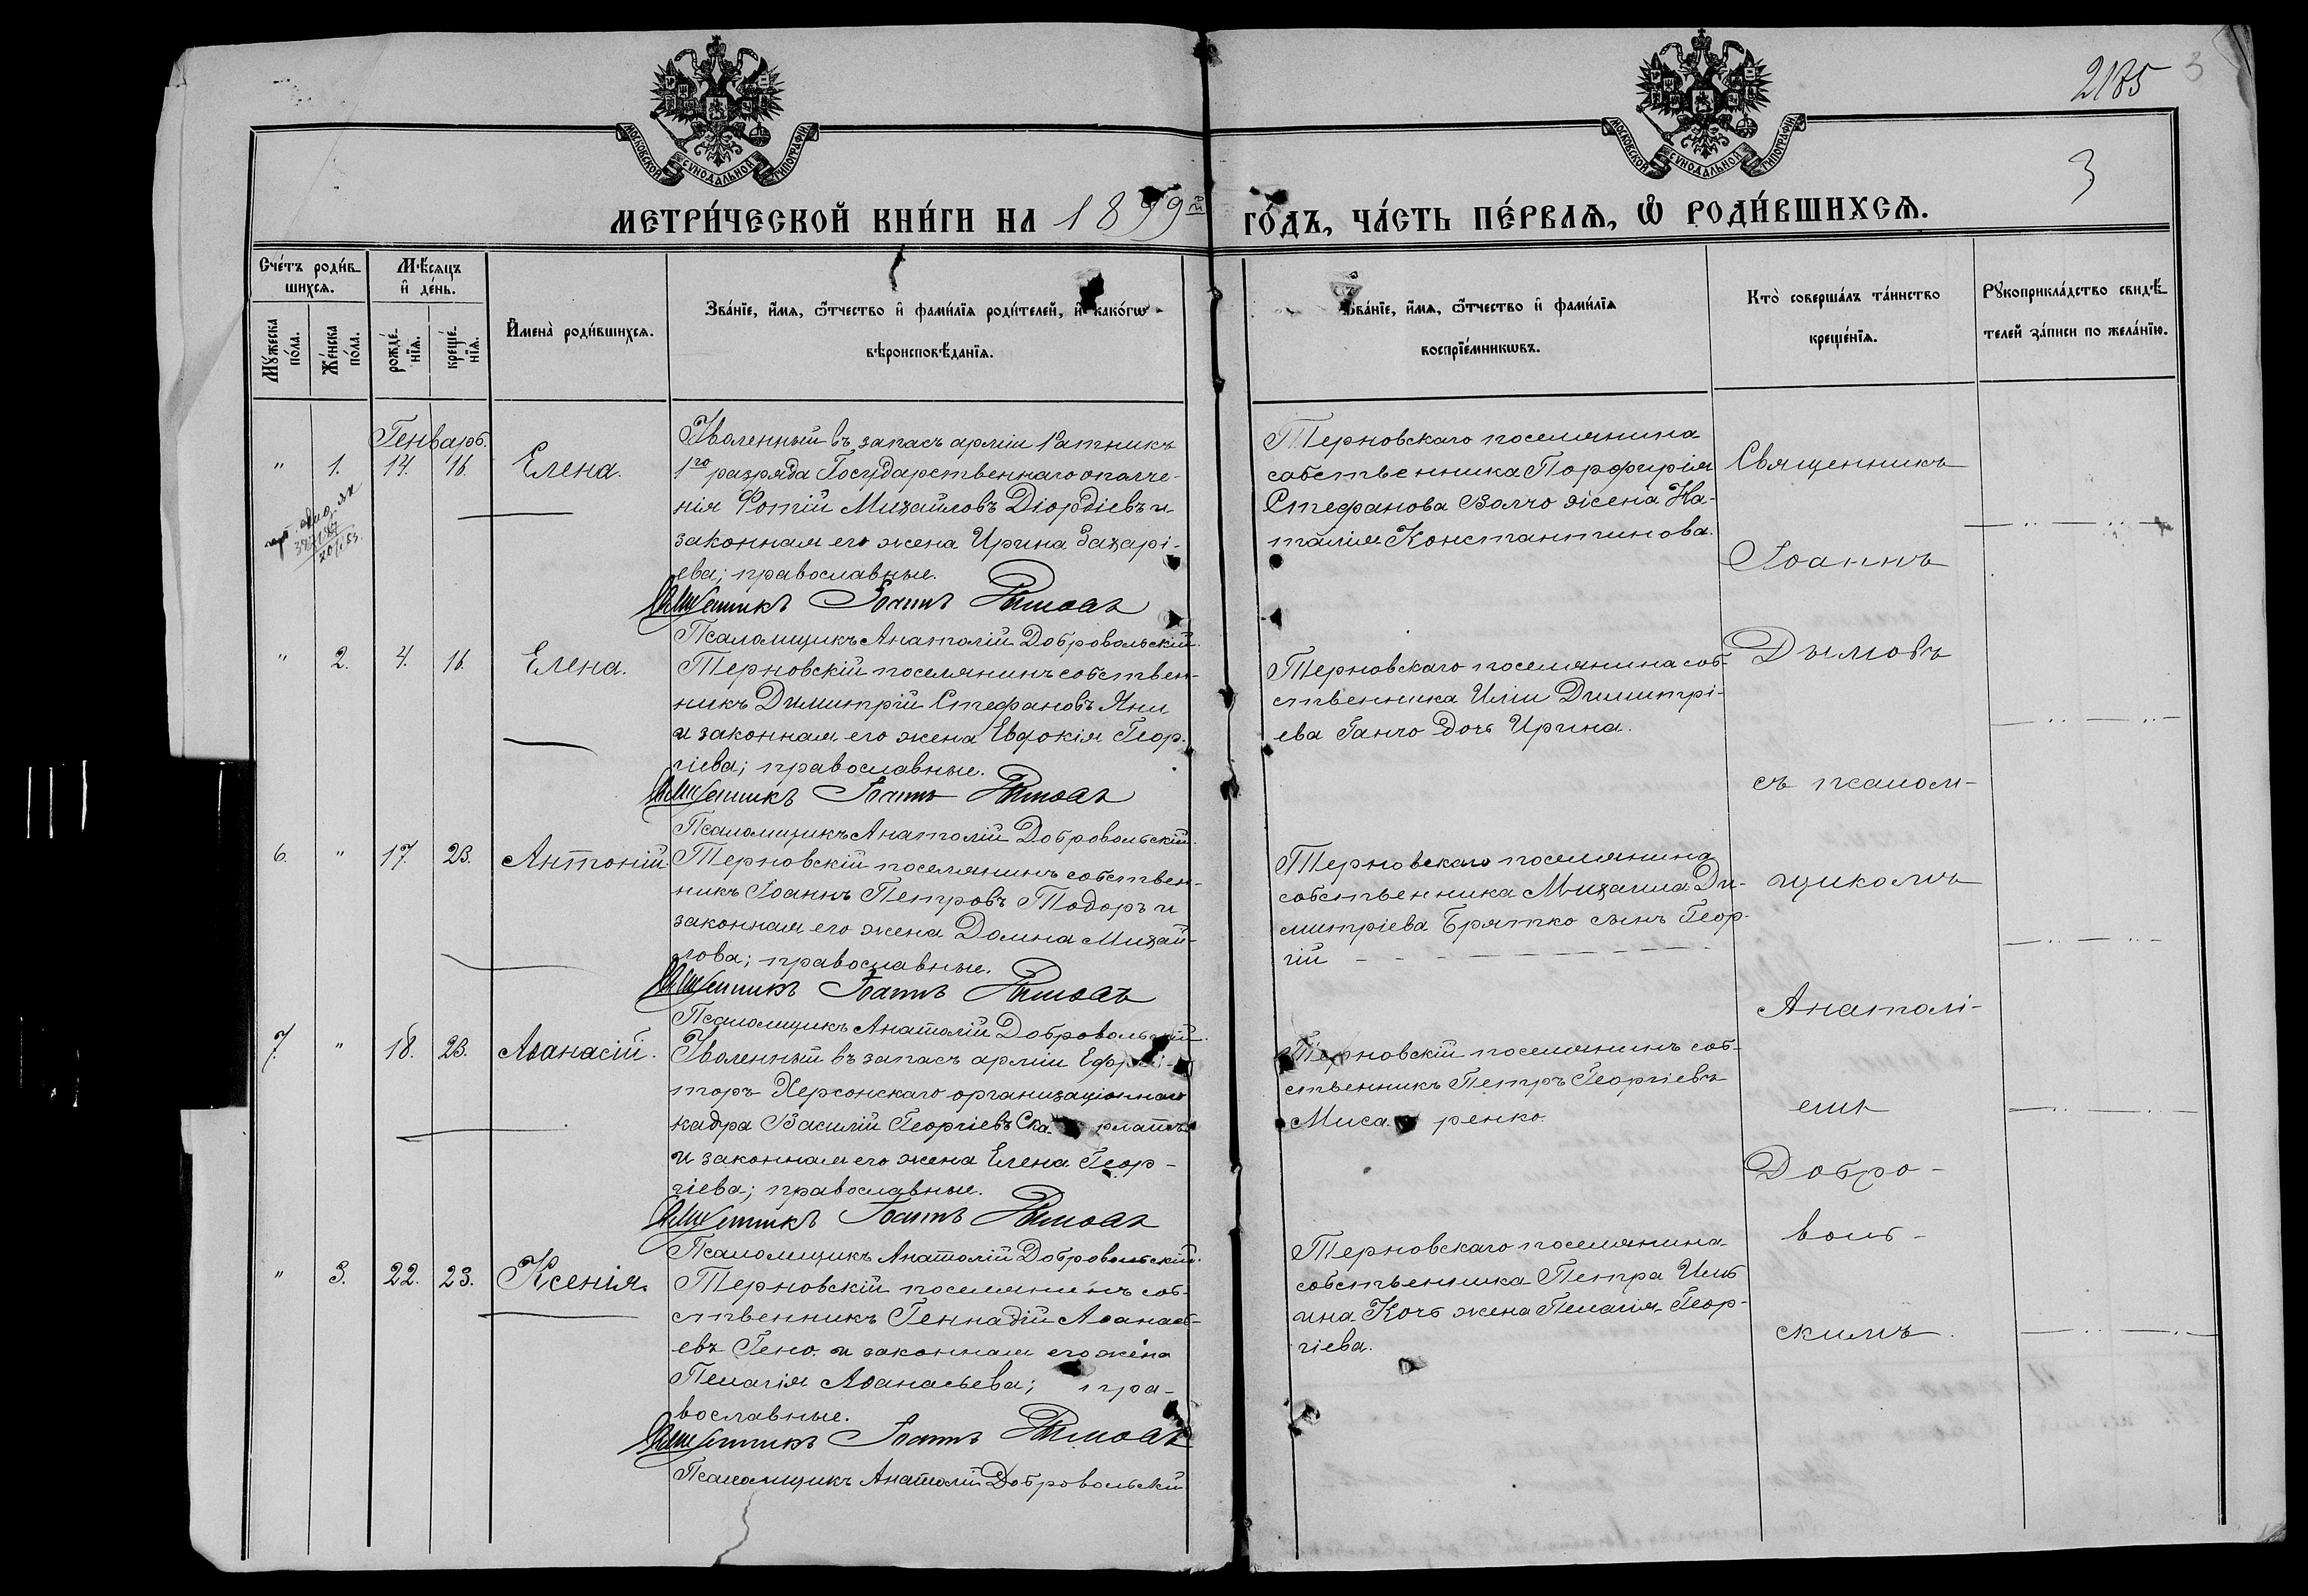 2185 3
МОСКОВСКОЙ СѴНОДАЛЬНОЙ ТИПОГРАФІИ
МОСКОВСКОЙ СѴНОДАЛЬНОЙ ТИПОГРАФІИ
3
МЕТРИ́ЧЕСКОЙ КНИ́ГИ НА 1899й ГО́ДЪ, ЧА́СТЬ ПЕ́РВАѦ, Ѡ҆ РОДИ́ВШИХСѦ.
Сче́тъ роди́в-
шихсѧ.
Мꙋ́жеска
по́ла.
Же́нска
по́ла.
Мѣ́сѧцъ
и҆ де́нь.
рожде́-
нїѧ.
креще́-
нїѧ.
И҆мена̀ роди́вшихсѧ.
Зва́нїе, и҆́мѧ, ѻ҆́тчество и҆ фами́лїѧ роди́телей, и҆ како́гѡ
вѣроисповѣ́данїѧ.
Зва́нїе, и҆́мѧ, ѻ҆́тчество и҆ фами́лїѧ
воспрїе́мникѡвъ.
Кто̀ соверша́лъ та́инство
креще́нїѧ.
Рꙋкоприкла́дство свидѣ́-
телей за́писи по жела́нїю.
Генварь.
" 1. 14. 16. Елена.
Уволенный въ запасъ арміи Ратникъ
1го разряда Государственнаго ополче-
нія Фотій Михайловъ Діордіевъ и
законная его жена Ирина Захарі-
ева; православные.
Священникъ Іоаннъ Дымовъ
Псаломщикъ Анатолій Добровольскій.
Терновскаго поселянина
собственника Порфирія
Стефанова Волчо жена На-
талія Константинова.
" 2. 4. 16. Елена.
Терновскій поселянинъ собствен-
никъ Димитрій Стефановъ Яни
и законная его жена Евдокія Геор-
гіева; православные.
Священникъ Іоаннъ Дымовъ
Псаломщикъ Анатолій Добровольскій.
Терновскаго поселянина соб-
ственника Иліи Димитрі-
ева Ганчо дочь Ирина.
6. " 17. 23. Антоній.
Терновскій поселянинъ собствен-
никъ Іоаннъ Петровъ Тодоръ и
законная его жена Домна Михай-
лова; православные.
Священникъ Іоаннъ Дымовъ
Псаломщикъ Анатолій Добровольскій.
Терновскаго поселянина
собственника Михаила Ди-
митріева Братко сынъ Геор-
гій
7. " 18. 23. Аѳанасій.
Уволенный въ запасъ арміи Ефрей-
торъ Херсонскаго организаціоннаго
кадра Василій Георгіевъ Ска рлатъ
и законная его жена Елена Геор-
гіева; православные.
Священникъ Іоаннъ Дымовъ
Псаломщикъ Анатолій Добровольскій.
Терновскій поселянинъ соб-
ственникъ Петръ Георгіевъ
Миса ренко.
" 3. 22. 23. Ксенія.
Терновскій поселянинъ соб-
ственникъ Геннадій Аѳанась-
евъ Гено и законная его жена
Пелагія Аѳанасьева; пра-
вославные.
Священникъ Іоаннъ Дымовъ
Псаломщикъ Анатолій Добровольскій
Терновскаго поселянина
собственника Петра Иль-
ина Кочь жена Пелагія Геор-
гіева.
Священникъ
Іоаннъ
Дымовъ
съ псалом-
щикомъ
Анатолі-
емъ
Добро-
воль-
скимъ.